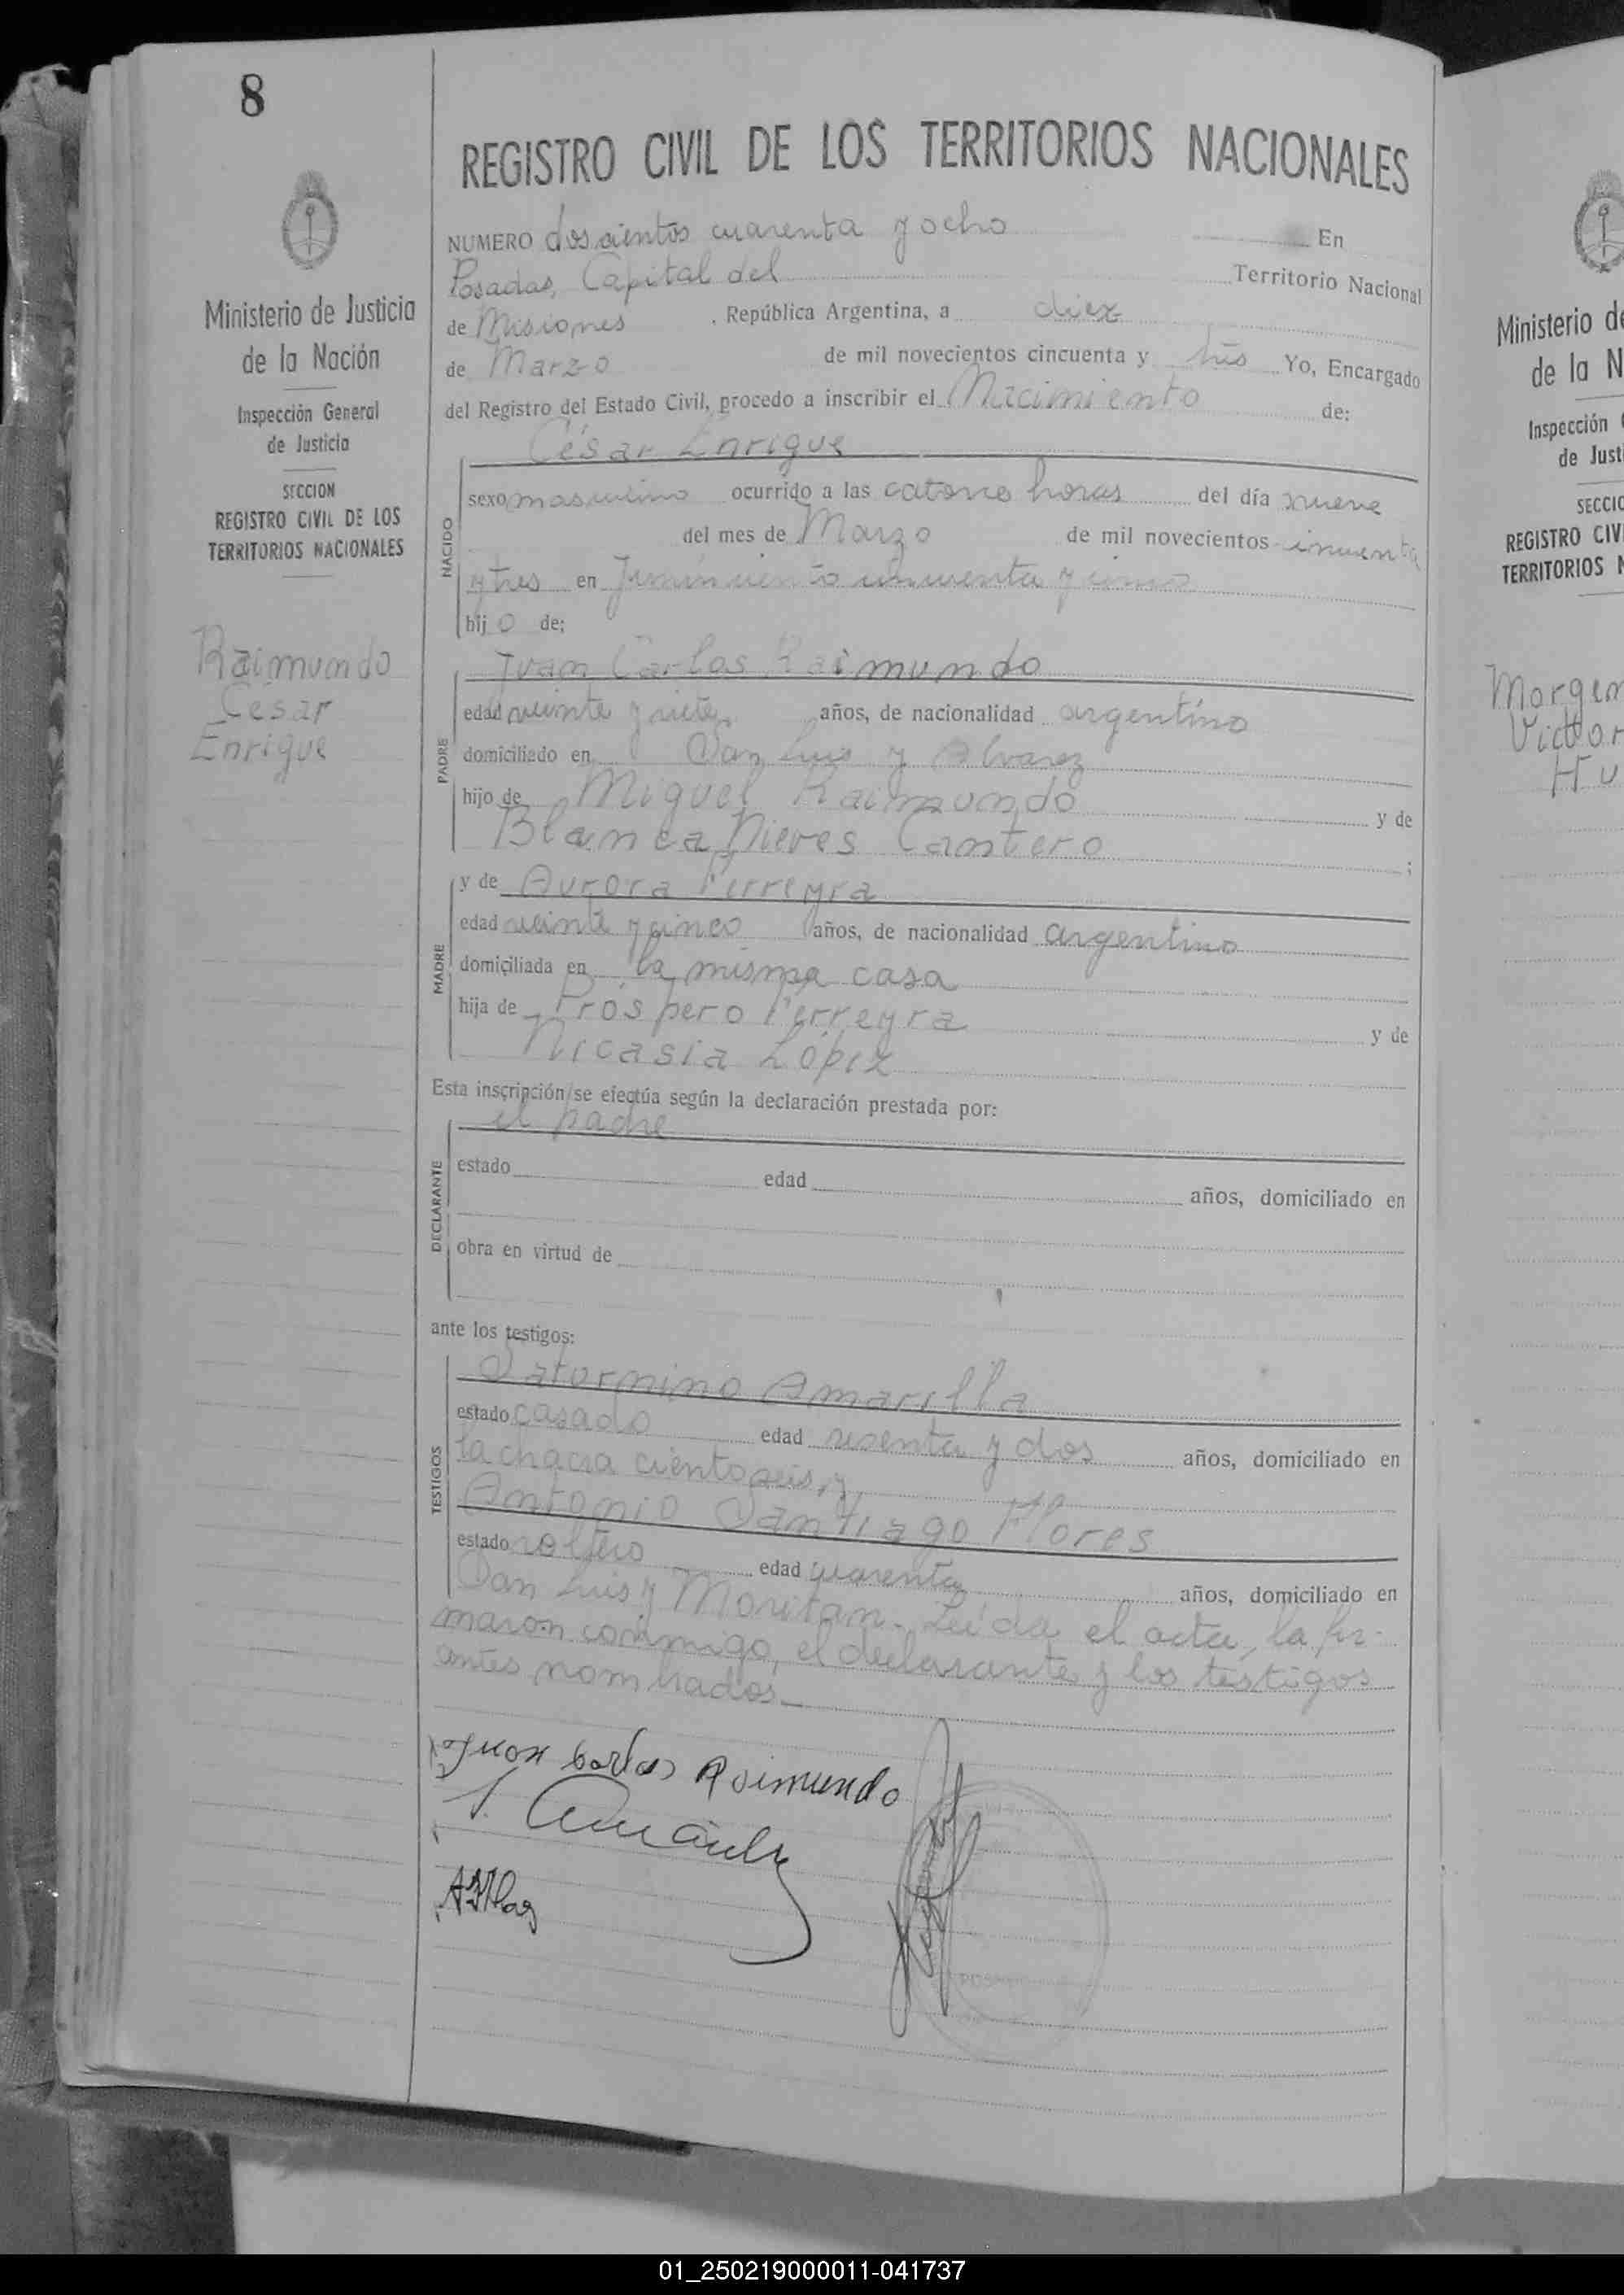 8
REGISTRO CIVIL DE LOS TERRITORIOS NACIONALES
NUMERO doscientos cuarenta y ocho En
Posadas, Capital del Territorio Nacional
de Misiones , República Argentina, a diez
de Marzo de mil novecientos cincuenta y tres Yo, Encargado
del Registro del Estado Civil, procedo a inscribir el Nacimiento de:
César Enrique
NACIDO
sexo masculino ocurrido a las catorce horas del día nueve
del mes de Marzo de mil novecientos cincuenta
y tres en Junín ciento cincuenta y cinco
hij o de;
Juan Carlos Raimundo
PADRE
edad veinte y siete años, de nacionalidad argentino
domiciliado en San Luis y Alvarez
hijo de Miguel Raimundo y de
Blanca Nieves Cantero ;
y de Aurora Ferreyra
MADRE
edad veinte y cinco años, de nacionalidad argentino
domiciliada en la misma casa
hija de Próspero Ferreyra y de
Nicasia López
Esta inscripción se efectúa según la declaración prestada por:
el padre
DECLARANTE
estado edad años, domiciliado en
obra en virtud de
ante los testigos:
Saturnino Amarilla
TESTIGOS
estado casado edad sesenta y dos años, domiciliado en
la chacra ciento seis, y
Antonio Santiago Flores
estado soltero edad cuarenta años, domiciliado en
San Luis y Moritan. Leída el acta, la fir-
maron conmigo, el declarante y los testigos
antes nombrados.
Juan Carlos Raimundo
Ministerio de Justicia
de la Nación
Inspección General
de Justicia
SECCION
REGISTRO CIVIL DE LOS
TERRITORIOS NACIONALES
Raimundo
César
Enrique
Ministerio de
de la N
Inspección
de Justi
SECCIO
REGISTRO CIV
TERRITORIOS N
Morgen
Victor
Hu
01_250219000011-041737